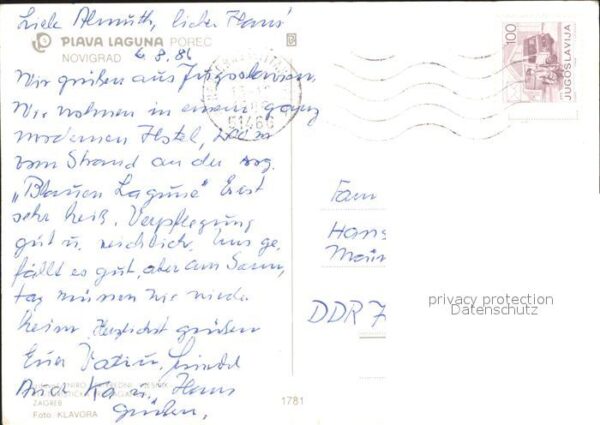 Liebe Almuth, lieber Hans!
PLAVA LAGUNA POREC
NOVIGRAD 6.8.86
Wir grüßen aus Jugoslawien.
Wir wohnen in einem ganz
modernen Hotel, 200 m
vom Strand an der sog.
„Blauen Lagune" Erst
sehr heiß. Verpflegung
gut u. reichlich. Uns ge-
fällt es gut, aber am Sonn,
tag müssen wir wieder
heim. Herzlichst grüßen
Eure
Auch Ka u. Hans
grüßen.
ZAGREB
Foto: KLAVORA
1781
51466
100
JUGOSLAVIJA
Fam
Hans
DDR 7
privacy protection
Datenschutz